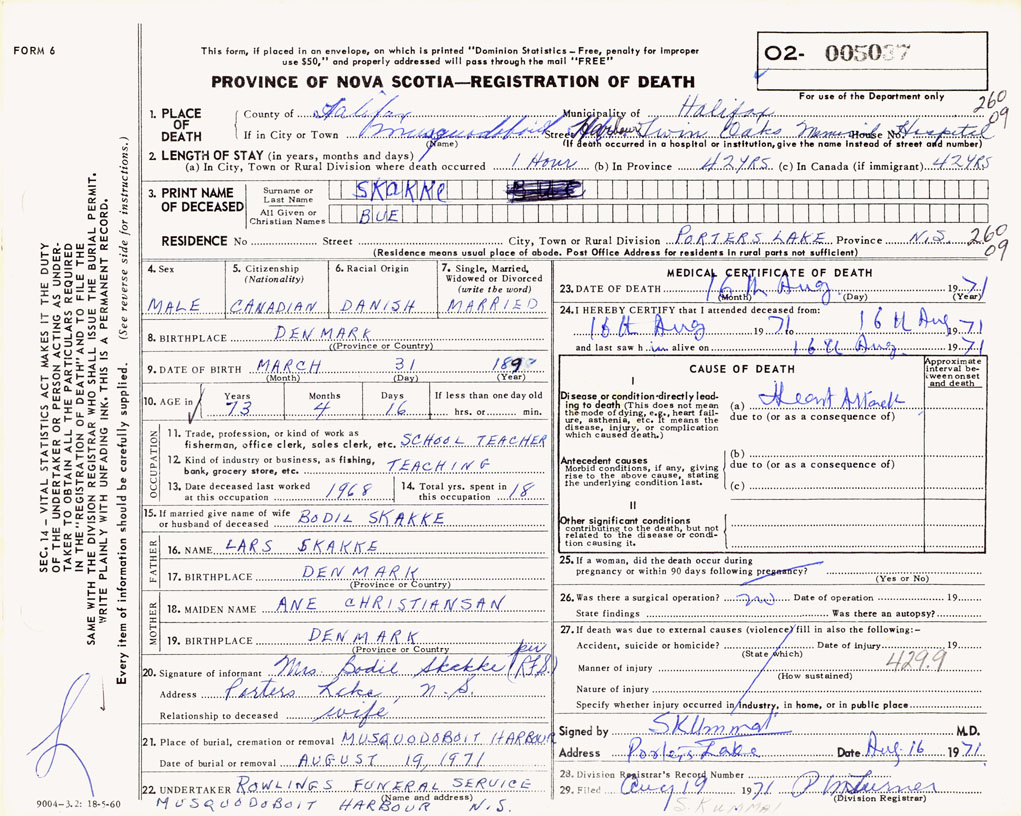 FORM 6
This form, if placed in an envelope, on which is printed "Dominion Statistics – Free, penalty for improper
use $50," and properly addressed will pass through the mail "FREE"
PROVINCE OF NOVA SCOTIA—REGISTRATION OF DEATH
O2- 005037
For use of the Department only
260
09
1. PLACE OF DEATH
County of Halifax Municipality of Halifax
If in City or Town Musquodoboit Harbour Street Twin Oaks Memorial Hospital House No.
(Name) (If death occurred in a hospital or institution, give the name instead of street and number)
2. LENGTH OF STAY (in years, months and days)
(a) In City, Town or Rural Division where death occurred 1 Hour (b) In Province 42YRS (c) In Canada (if immigrant) 42YRS
3. PRINT NAME OF DECEASED
Surname or Last Name SKAKKE
All Given or Christian Names BUE
RESIDENCE No Street City, Town or Rural Division PORTERS LAKE Province N.S.
260
09
(Residence means usual place of abode. Post Office Address for residents in rural parts not sufficient)
4. Sex
MALE
5. Citizenship (Nationality)
CANADIAN
6. Racial Origin
DANISH
7. Single, Married, Widowed or Divorced (write the word)
MARRIED
8. BIRTHPLACE DENMARK
(Province or Country)
9. DATE OF BIRTH MARCH 31
(Month) (Day) (Year)
10. AGE in Years Months Days If less than one day old
73 4 16 hrs. or min.
OCCUPATION
11. Trade, profession, or kind of work as
fisherman, office clerk, sales clerk, etc. SCHOOL TEACHER
12. Kind of industry or business, as fishing,
bank, grocery store, etc. TEACHING
13. Date deceased last worked at this occupation 1968
14. Total yrs. spent in this occupation 18
15. If married give name of wife
or husband of deceased BODIL SKAKKE
FATHER
16. NAME LARS SKAKKE
17. BIRTHPLACE DENMARK
(Province or Country)
MOTHER
18. MAIDEN NAME ANE CHRISTIANSAN
19. BIRTHPLACE DENMARK
(Province or Country)
20. Signature of informant Mrs. Bodil Skakke per (R.F.S.)
Address Porters Lake, N.S.
Relationship to deceased wife
21. Place of burial, cremation or removal MUSQUODOBOIT HARBOUR
Date of burial or removal AUGUST 19, 1971
22. UNDERTAKER ROWLINGS FUNERAL SERVICE
(Name and address)
MUSQUODOBOIT HARBOUR N.S.
MEDICAL CERTIFICATE OF DEATH
23. DATE OF DEATH 16th Aug. 1971
(Month) (Day) (Year)
24. I HEREBY CERTIFY that I attended deceased from:
16th Aug 1971 to 16th Aug 1971
and last saw him alive on 16th Aug. 1971
CAUSE OF DEATH
Approximate interval between onset and death
I
Disease or condition directly leading to death (This does not mean the mode of dying, e.g., heart failure, asthenia, etc. It means the disease, injury, or complication which caused death.)
(a) Heart Attack
due to (or as a consequence of)
Antecedent causes
Morbid conditions, if any, giving rise to the above cause, stating the underlying condition last.
(b)
due to (or as a consequence of)
(c)
II
Other significant conditions
contributing to the death, but not related to the disease or condition causing it.
25. If a woman, did the death occur during
pregnancy or within 90 days following pregnancy?
(Yes or No)
26. Was there a surgical operation? no Date of operation 19
State findings Was there an autopsy?
27. If death was due to external causes (violence) fill in also the following:–
Accident, suicide or homicide? Date of injury 19
(State which)
429.9
Manner of injury
(How sustained)
Nature of injury
Specify whether injury occurred in industry, in home, or in public place
Signed by SKUmmat M.D.
Address Porters Lake Date Aug 16 1971
28. Division Registrar's Record Number
29. Filed Aug 19 1971 P M Turner
(Division Registrar)
S. KUMMAI
SEC. 14 – VITAL STATISTICS ACT MAKES IT THE DUTY
OF THE UNDERTAKER OR PERSON ACTING AS UNDER-
TAKER TO OBTAIN ALL THE PARTICULARS REQUIRED
IN THE "REGISTRATION OF DEATH" AND TO FILE THE
SAME WITH THE DIVISION REGISTRAR WHO SHALL ISSUE THE BURIAL PERMIT.
WRITE PLAINLY WITH UNFADING INK. THIS IS A PERMANENT RECORD.
Every item of information should be carefully supplied. (See reverse side for instructions.)
9004-3.2: 18-5-60